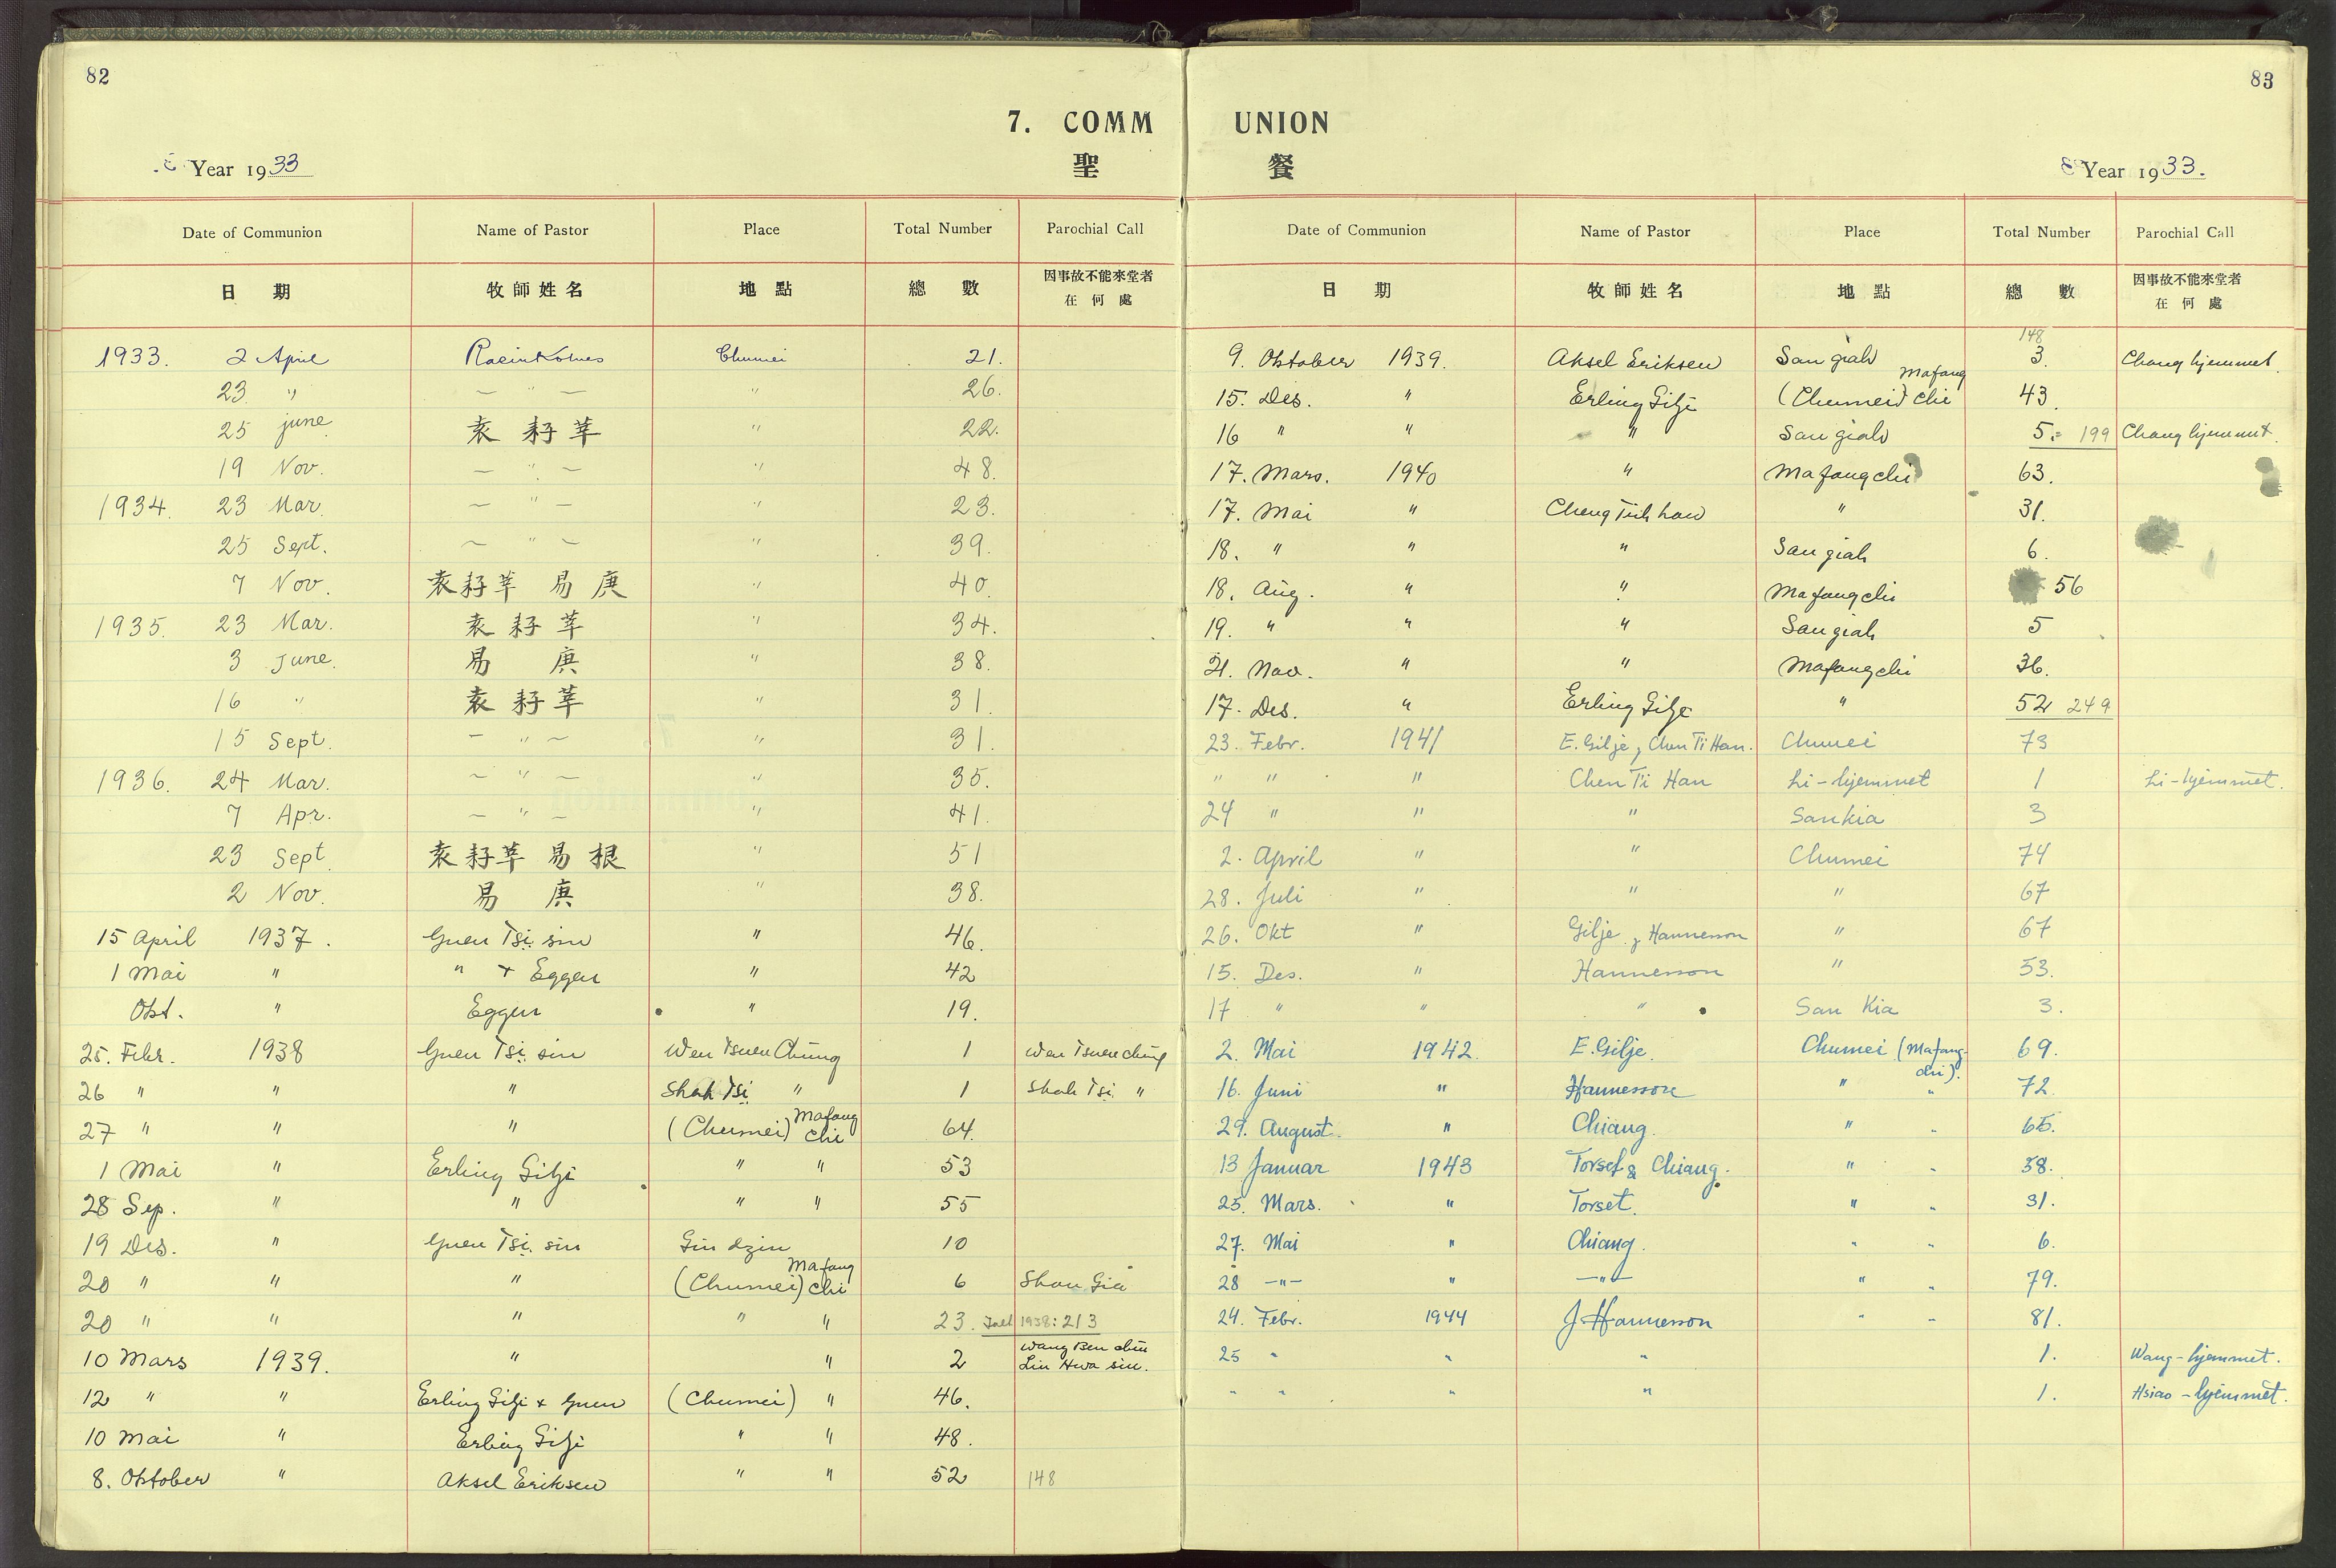 82
7. COMM
聖
Year 1933
Date of Communion Name of Pastor Place Total Number Parochial Call
日期 牧師姓名 地點 總數 因事故不能來堂者
在何處
1933. 2 April Chumei 21.
23 " — " — " 26.
25 june 袁耔莘 " 22.
19 Nov. — " — " 48.
1934. 23 Mar. — " — " 23.
25 Sept. — " — " 39.
7 Nov. 袁耔莘 易庚 " 40.
1935. 23 Mar. 袁耔莘 " 34.
3 June. 易庚 " 38.
16 " 袁耔莘 " 31.
15 Sept. — " — " 31.
1936. 24 Mar. — " — " 35.
7 Apr. — " — " 41.
23 Sept. 袁耔莘 易根 " 51
2 Nov. 易庚 " 38.
15 April 1937. Guen Tsi sin " 46.
1 Mai " " + Eggen " 42
Okt. " Eggen " 19.
25. Febr. 1938 Guen Tsi sin Wen Tsuen Chung 1 Wen Tsuen chung
26 " " " Shah Tsi " 1 Shah Tsi "
27 " " " (Chumei) Mafang chi 64.
1 Mai " Erling Gilje " " 53
28 Sep. " " " " 55
19 Des. " Guen Tsi sin Gin dzin 10
20 " " " (Chumei) Mafang chi 6 Shan Gia
20 " " " " " 23. 1938: 213
10 Mars 1939. " " 2 Wang Ben chin
Lin Hwa sin.
12 " " Erling Gilje + Guen (Chumei) " 46.
10 Mai " Erling Gilje " " 48.
8. Oktober " Aksel Eriksen " " 52 148
83
UNION
餐
Year 1933.
Date of Communion Name of Pastor Place Total Number Parochial Call
日期 牧師姓名 地點 總數 因事故不能來堂者
在何處
148
9. Oktober 1939. Aksel Eriksen San giah 3. Chang hjemmet.
15. Des. " Erling Gilje (Chumei) Mafang chi 43.
16 " " " San giah 5.= 199 Chang hjemmet.
17. Mars. 1940 " Mafangchi 63.
17. Mai " Cheng Tieh han " 31.
18. " " " San giah 6.
18. Aug. " " Mafangchi 56
19. " " " San giah 5
21. Nov. " " Mafangchi 36.
17. Des. " Erling Gilje " 52 249
23. Febr. 1941 E. Gilje, Chen Ti Han. Chumei 73
" " " Chen Ti Han Li-hjemmet 1 Li-hjemmet.
24 " " " Sankia 3
2. April " " Chumei 74
28. Juli " " " 67
26. Okt " Gilje, Hannesson " 67
15. Des. " Hannesson " 53.
17 " " " San Kia 3.
2. Mai 1942. E. Gilje. Chumei (Mafang-
chi). 69.
16. Juni " Hannesson " " 72.
29. August. " Chiang. " " 65.
13 Januar 1943 Torset & Chiang. " " 38.
25. Mars. " Torset. " " 31.
27. Mai " Chiang. " " 6.
28 —"— " —"— " " 79.
24. Febr. 1944 J. Hannesson " " 81.
25 " " " 1. Wang-hjemmet.
" " " " 1. Hsiao-hjemmet.